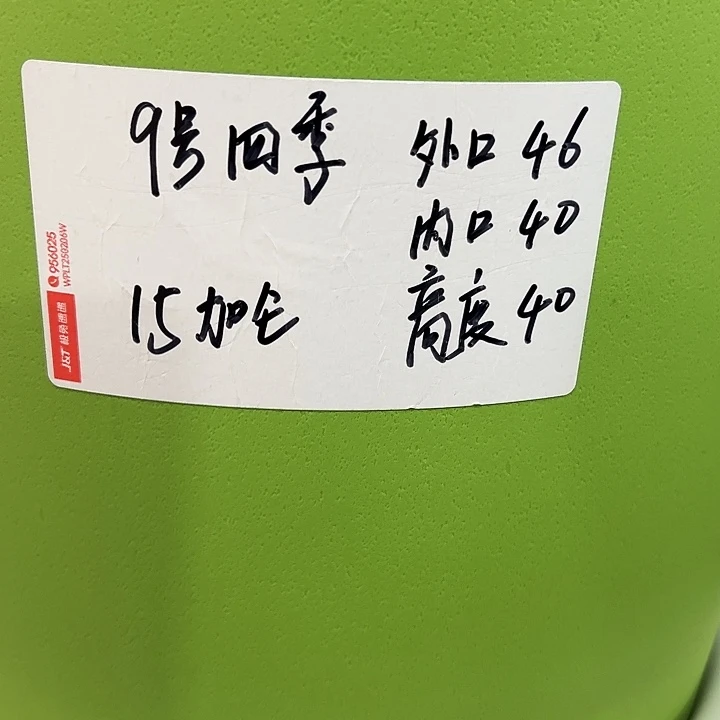 9号四季
15加仑
外口 46
内口 40
高度 40
956025
WPLT2502D6W
J&T 极兔速递